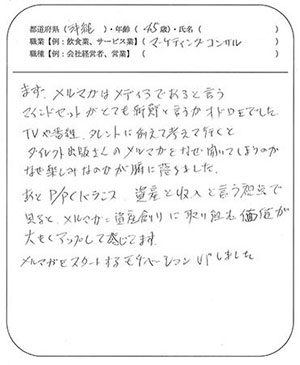 都道府県(沖縄)・年齢(45歳)・氏名( )
職業【例:飲食業、サービス業】(マーケティングコンサル)
職種【例:会社経営者、営業】( )
まず、メルマガはメディアであると言う
マインドセットがとても新鮮と言うかオドロキでした
TVや番組、タレントに例えて考えて行くと
ダイレクト出版さんのメルマガをなぜ開いてしまうのか
なぜ楽しみなのかが腑に落ちました。
あとP/Pバランス 資産と収入と言う視点で
見ると、メルマガ=資産創りに取り組む価値が
大きくアップして感じてます。
メルマガをスタートするモチベーションUPしました